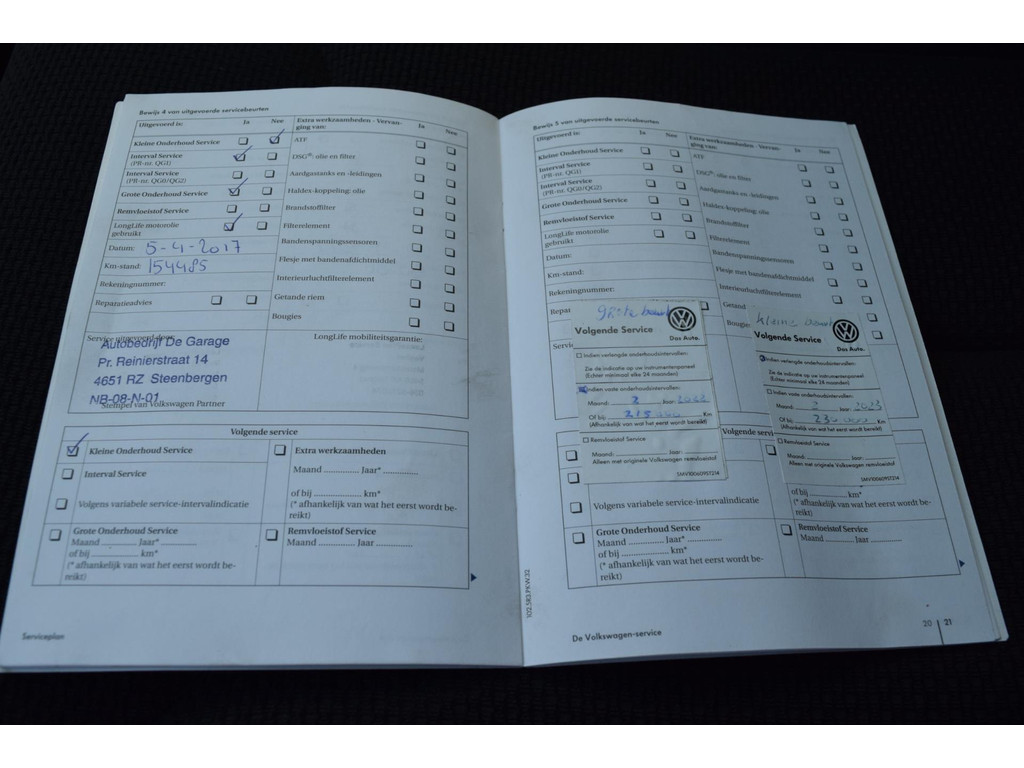 Bewijs 4 van uitgevoerde servicebeurten
Uitgevoerd is: Ja Nee
Kleine Onderhoud Service
Interval Service
(PR-nr. QG1)
Interval Service
(PR-nr. QG0/QG2)
Grote Onderhoud Service
Remvloeistof Service
LongLife motorolie
gebruikt
Datum: 5-4-2017
Km-stand: 154485
Rekeningnummer:
Reparatieadvies
Extra werkzaamheden - Vervan-
ging van: Ja Nee
ATF
DSG®: olie en filter
Aardgastanks en -leidingen
Haldex-koppeling: olie
Brandstoffilter
Filterelement
Bandenspanningssensoren
Flesje met bandenafdichtmiddel
Interieurluchtfilterelement
Getande riem
Bougies
Service uitgevoerd door:
Autobedrijf De Garage
Pr. Reinierstraat 14
4651 RZ Steenbergen
NB-08-N-01
Stempel van Volkswagen Partner
LongLife mobiliteitsgarantie:
Volgende service
Kleine Onderhoud Service
Interval Service
Volgens variabele service-intervalindicatie
Grote Onderhoud Service
Maand Jaar*
of bij km*
(* afhankelijk van wat het eerst wordt be-
reikt)
Extra werkzaamheden
Maand Jaar*
of bij km*
(* afhankelijk van wat het eerst wordt be-
reikt)
Remvloeistof Service
Maand Jaar
Serviceplan
Bewijs 5 van uitgevoerde servicebeurten
Uitgevoerd is: Ja Nee
Kleine Onderhoud Service
Interval Service
(PR-nr. QG1)
Interval Service
(PR-nr. QG0/QG2)
Grote Onderhoud Service
Remvloeistof Service
LongLife motorolie
gebruikt
Datum:
Km-stand:
Rekeningnummer:
Repa
Servic
Extra werkzaamheden - Vervan-
ging van: Ja Nee
ATF
DSG®: olie en filter
Aardgastanks en -leidingen
Haldex-koppeling: olie
Brandstoffilter
Filterelement
Bandenspanningssensoren
Flesje met bandenafdichtmiddel
Interieurluchtfilterelement
Getand
Bougie
grote beurt
Volgende Service
Das Auto.
Indien verlengde onderhoudsintervallen:
Zie de indicatie op uw instrumentenpaneel
(Echter minimaal elke 24 maanden)
Indien vaste onderhoudsintervallen:
Maand: 2 Jaar: 2022
Of bij 215000 Km
(Afhankelijk van wat het eerst wordt bereikt)
Remvloeistof Service
Maand: Jaar:
Alleen met originele Volkswagen remvloeistof
SMV10060957214
kleine beurt
Volgende Service
Das Auto.
Indien verlengde onderhoudsintervallen:
Zie de indicatie op uw instrumentenpaneel
(Echter minimaal elke 24 maanden)
Indien vaste onderhoudsintervallen:
Maand: 2 Jaar: 2023
Of bij 230000 Km
(Afhankelijk van wat het eerst wordt bereikt)
Remvloeistof Service
Maand: Jaar:
Alleen met originele Volkswagen remvloeistof
SMV10060957214
Volgende servi
Volgens variabele service-intervalindicatie
Grote Onderhoud Service
Maand Jaar*
of bij km*
(* afhankelijk van wat het eerst wordt be-
reikt)
of bij km*
(* afhankelijk van wat het eerst wordt be-
reikt)
Remvloeistof Service
Maand Jaar
102.5R3.PKW.32
De Volkswagen-service
20 21